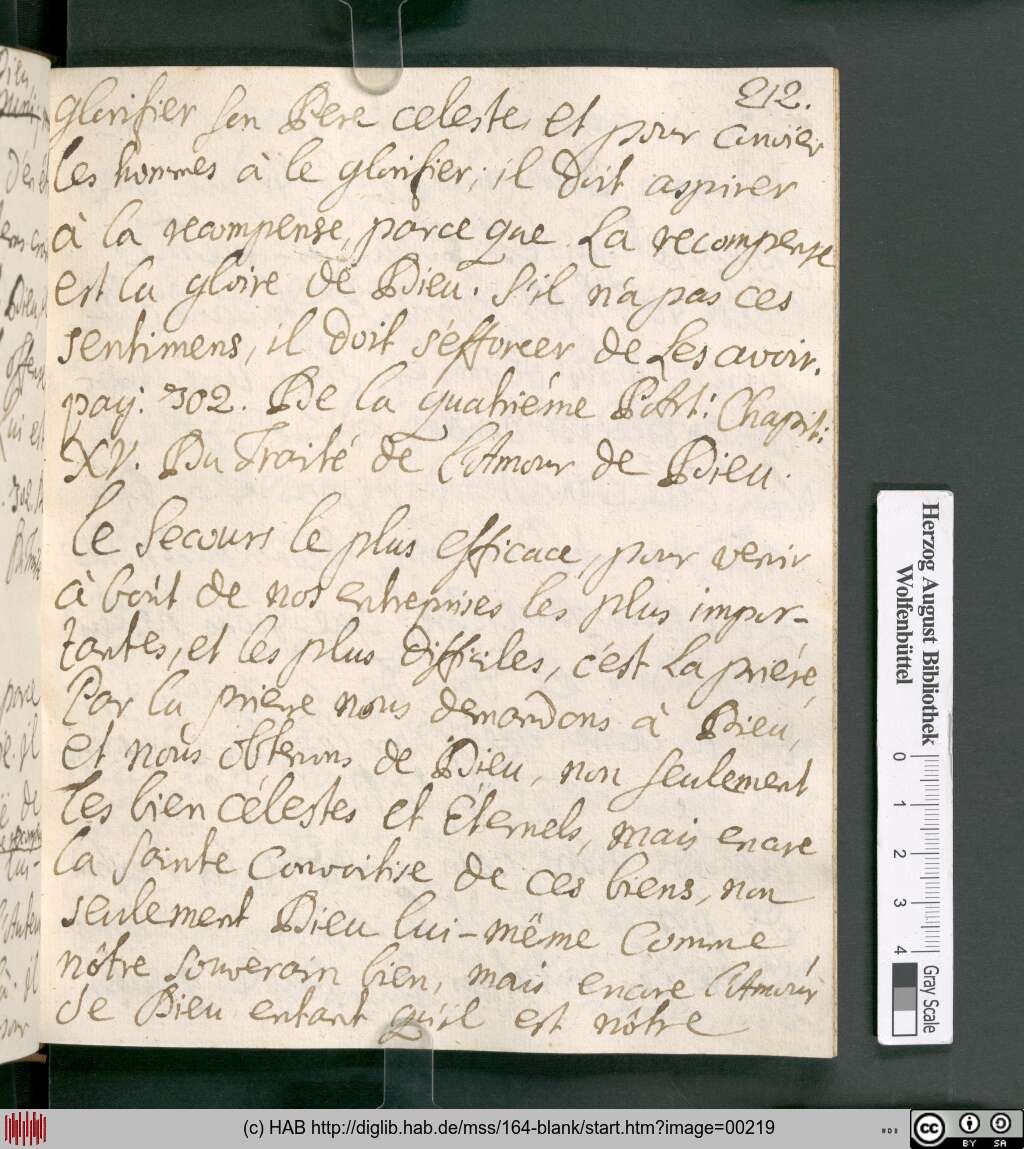 212.
glorifier son Pere celeste, et pour
les hommes à le glorifier; il doit aspirer
à la recompense, parce que la recompense
est la gloire de Dieu. S'il n'a pas ces
sentimens, il doit s'efforcer de les avoir.
pag: 302. De la quatriéme Part: Chapit:
XV. Du Traité de l'Amour de Dieu.
Le secours le plus efficace, pour venir
à bout de nos entreprises les plus impor-
tantes, et les plus difficiles, c'est la priére,
Par la priere nous demandons à Dieu,
et nous obtenons de Dieu, non seulement
les bien célestes et Éternels, mais encore
la sainte Convoitise de ces biens, non
seulement Dieu lui-même comme
nôtre souverain bien, mais encore l'Amour
de Dieu entant qu'il est nôtre
Herzog August Bibliothek
Wolfenbüttel
0 1 2 3 4
Gray Scale
(c) HAB http://diglib.hab.de/mss/164-blank/start.htm?image=00219
cc BY SA